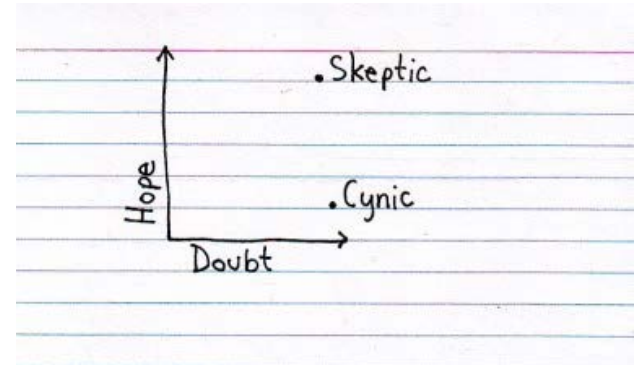 Skeptic
Hope
Cynic
Doubt